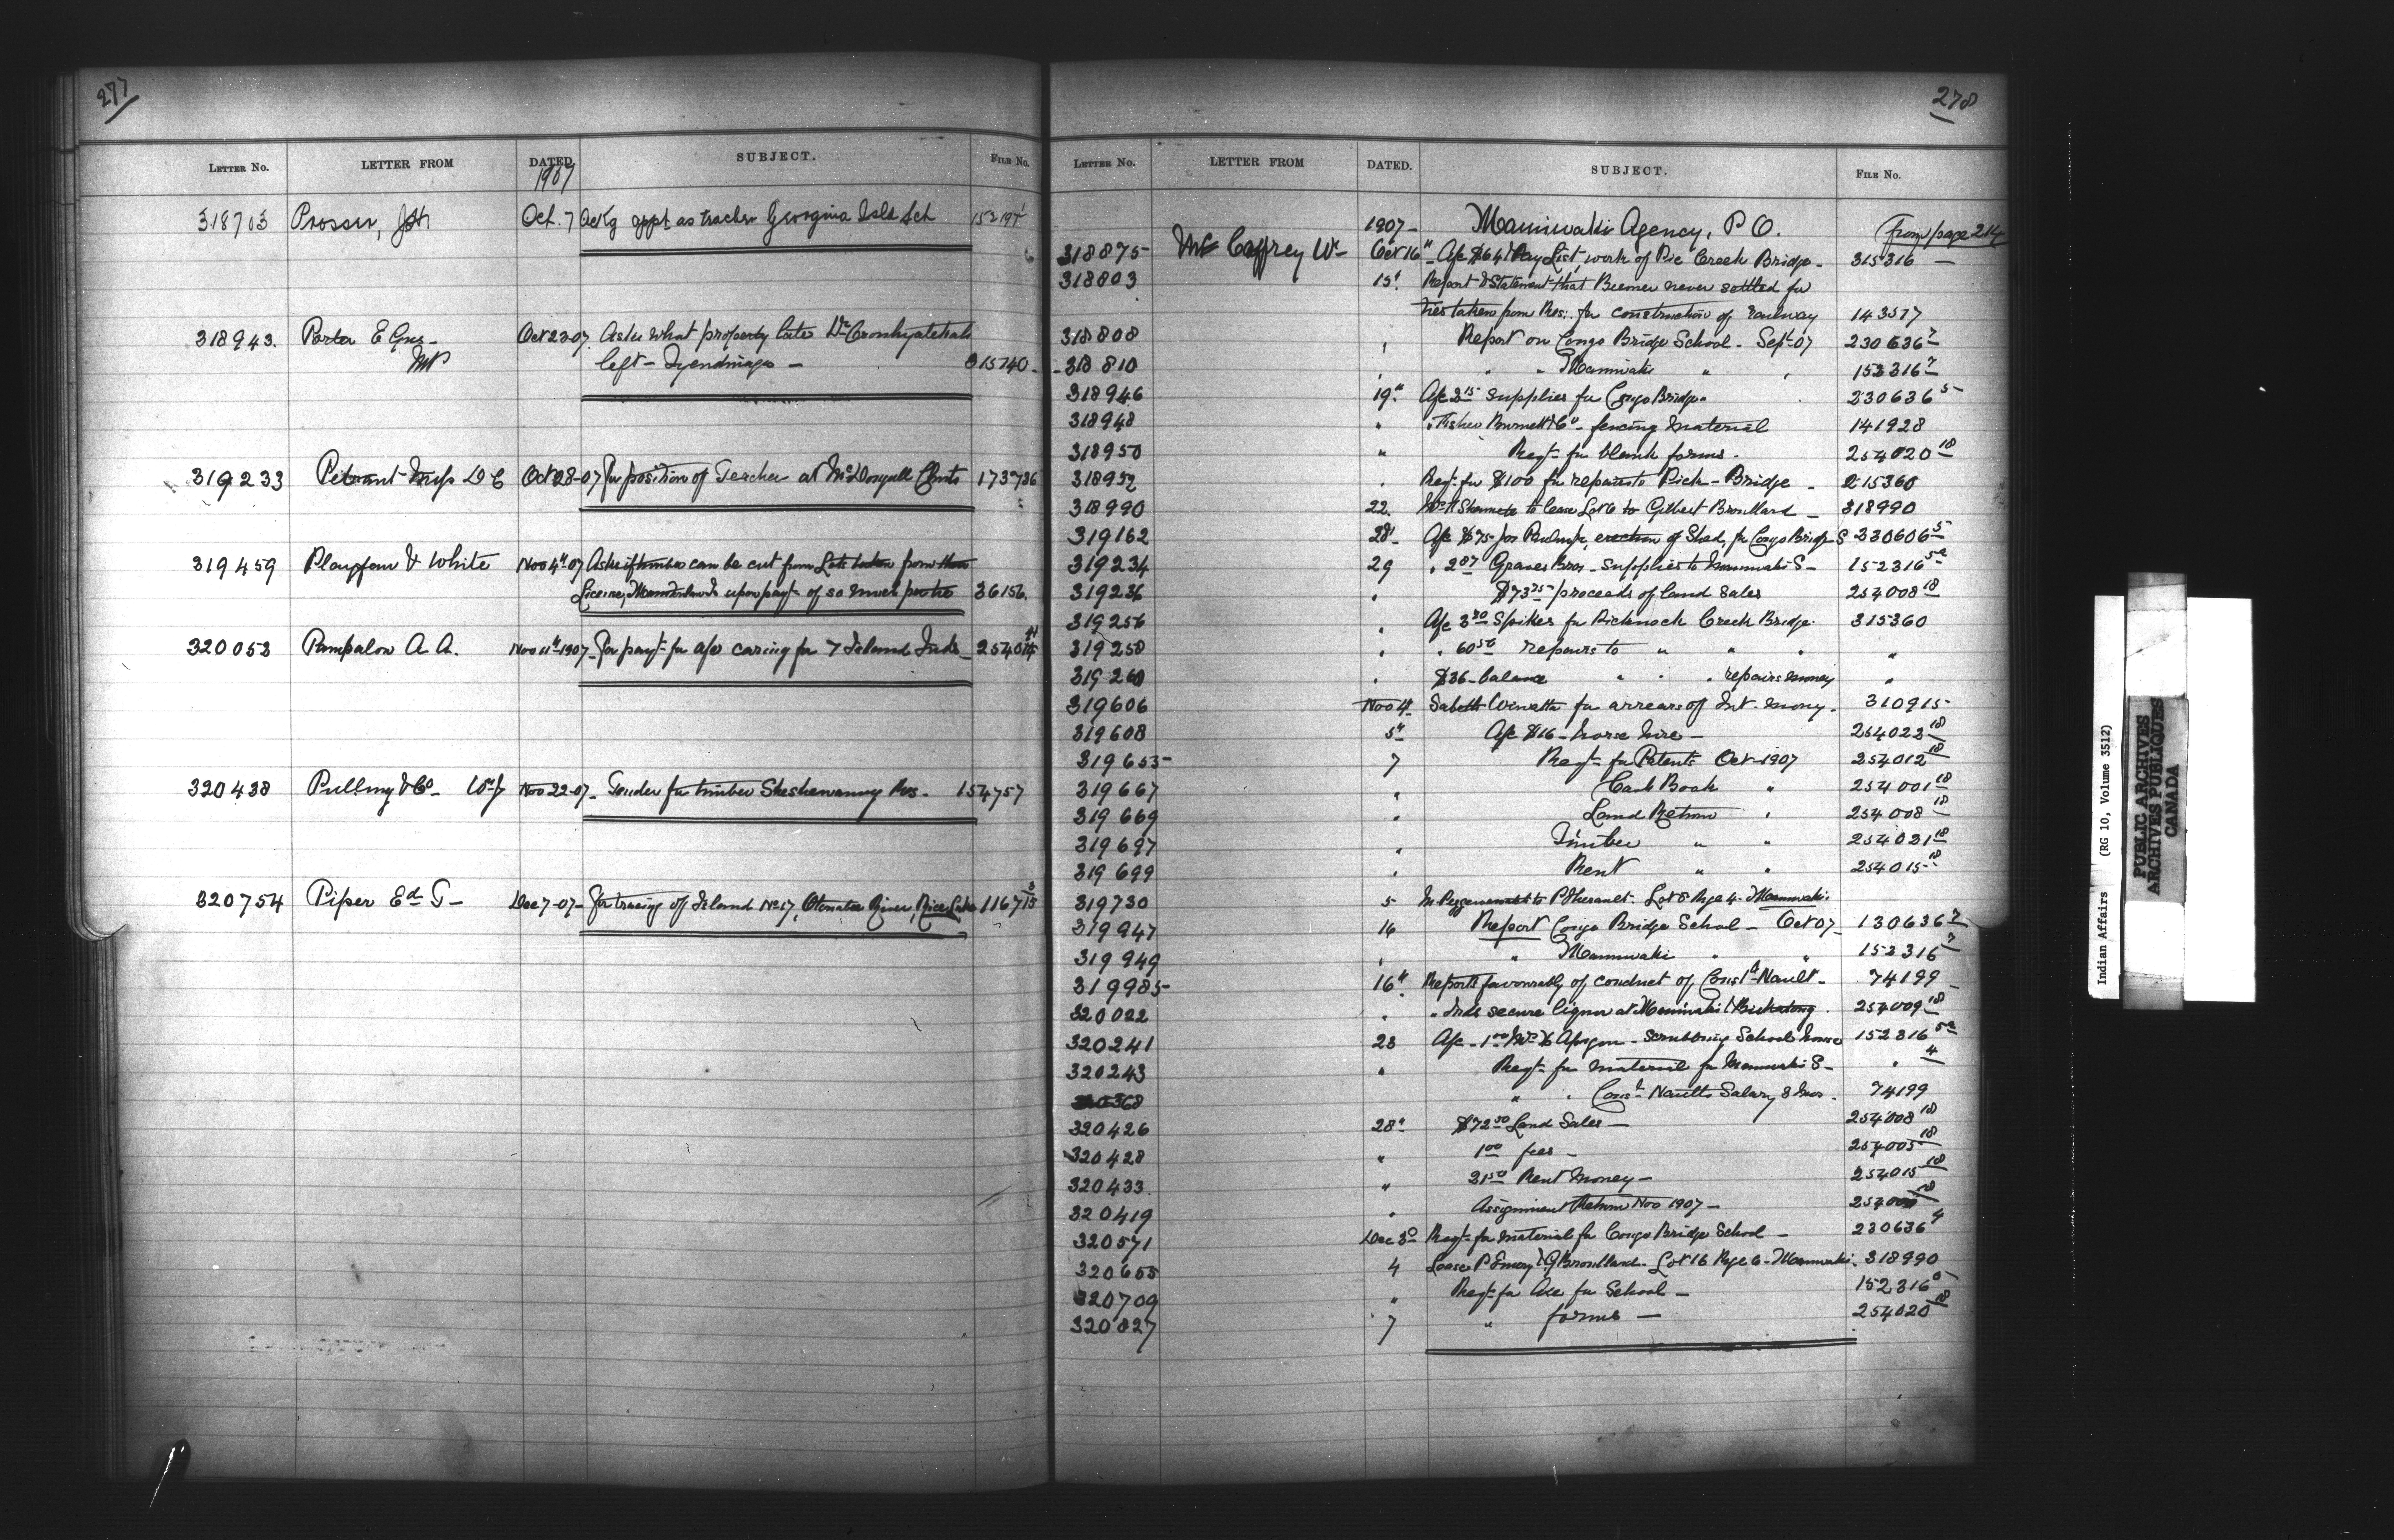 277
LETTER NO. LETTER FROM DATED. SUBJECT. FILE NO.
1907
318703 Prosser, Oct. 7 Ackg appt as teacher Georgina Isld Sch
318943. Porter E Guss - MP Oct 23-07 Asks what property late Wm
left - Tyendinaga - 315740
319233 Miss D C Oct 28-07 For position of Teacher at McDougall 173736
319459 Playfair & White Nov 4th 07 Asks if timber can be cut from Lots taken from their
License, upon payt of so much 36156.
320053 Pampalon A. A. Nov 11th 1907 - For payt for a/c caring for 7 Island Inds -
320438 Pulling & Co - Wm J Nov 22-07 - Tender for timber Sheshewaning Res - 154757
320754 Piper Ed. T - Dec 7-07 - For tracing of Island No 17, Otonabee River, Rice Lake
278
LETTER NO. LETTER FROM DATED. SUBJECT. FILE NO.
1907 - Maniwaki Agency, P Q. (from page 214
318875 McCaffrey W - Oct 16" - A/c $64 Pay List, work of Pic Creek Bridge - 315316 -
318803 15" Report & Statement that Beemer never settled for
ties taken from Res. for construction of railway 143577
318808 Report on Congo Bridge School - Sept 07 230636 7
318810 " " Maniwaki " 152316 7
318946 19" A/c 2 15 supplies for Congo Bridge " 230636 5
318948 " " Fisher Burnett & Co - fencing material 141928
318950 " Reqt for blank forms - 254020 18
318952 Reqt for $100 for repairs to Pick - Bridge - 215360
318990 22. to lease Lot 6 to Gilbert Brouillard - 318990
319162 28" A/c $75 for erection of Shed, for Congo Bridge S 230606 5
319234 29 " 2 87 Graves Bros - Supplies to Maniwaki S - 152316 5a
319236 " $73 75 proceeds of land sales 254008 18
319256 " A/c 3 70 Spikes for Picknock Creek Bridge - 315360
319258 " " 60 50 repairs to " " " "
319260 " $36 - balance " " " repairs money "
319606 Nov 4" Sabeth for arrears of Int. money - 310915
319608 5" A/c $16 - horse hire - 254023 18
319653 7 Reqt for Patents Oct - 1907 254012 18
319667 " Cash Book " 254001 18
319669 " Land Return " 254008 18
319697 " Timber " " 254021 18
319699 " Rent " " 254015 18
319730 5 to P Therault - Lot 8 Rge 4 - Maniwaki.
319947 16 Report Congo Bridge School - Oct 07 - 130636 7
319949 " " Maniwaki " " 152316 7
319985 16" Reports favourably of conduct of Const. Nault - 74199 -
320022 " " Inds secure liquor at Maniwaki & 254009 18
320241 23 A/c - 1 00 Mrs - scrubbing School house 152316 5a
320243 " Reqt for material for Maniwaki S - " 4
320368 " " Const Naults Salary 3 mos. 74199
320426 28" $72 50 Land Sales - 254008 18
320428 " 1 00 fees - 254005 18
320433. " 21 50 Rent Money - 254015 18
320419 " Assignment Return Nov 1907 -
320571 Dec 3 Reqt for material for Congo Bridge School - 230636 4
320655 4 Lease P Emery & G Brouillard - Lot 16 Rge 6 - Maniwaki. 318990
320709 " Reqt for Axe for School - 152316
320827 7 " forms - 254020 18
Indian Affairs (RG 10, Volume 3512)
PUBLIC ARCHIVES
ARCHIVES PUBLIQUES
CANADA